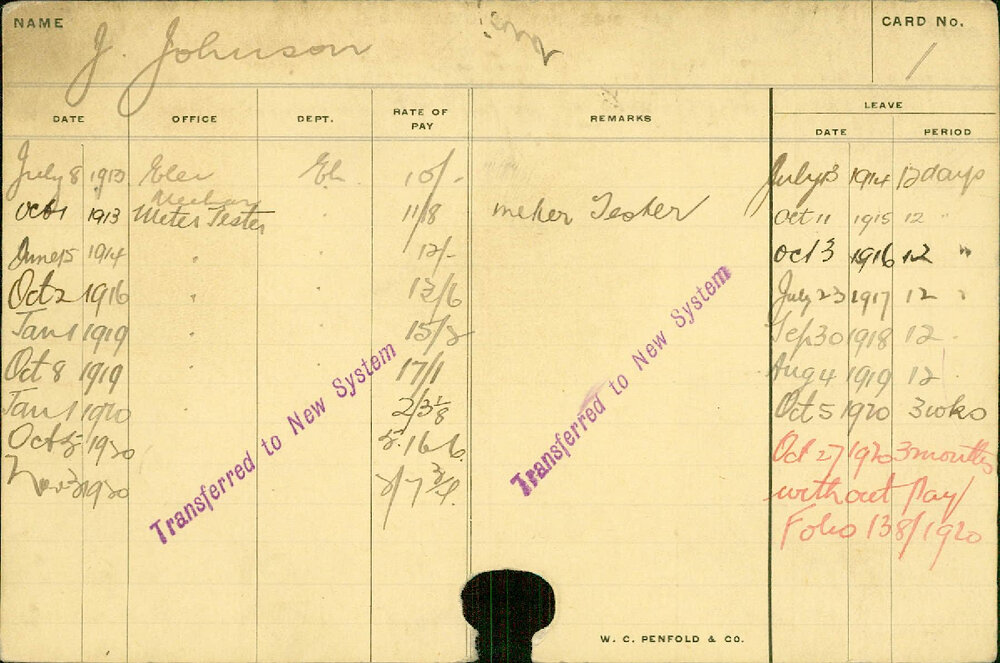 NAME J. Johnson CARD No. 1
LEAVE
DATE OFFICE DEPT. RATE OF PAY REMARKS DATE PERIOD
July 8 1913 Elec El. 10/- July 13 1914 12 days
Mechan
Oct 1 1913 Meter Tester 11/8 meter Tester Oct 11 1915 12 "
June 15 1914 " " 12/- Oct 3 1916 12 "
Oct 2 1916 " " 13/6 July 23 1917 12 "
Jan 1 1919 " " 15/2 Sep 30 1918 12 "
Oct 8 1919 " " 17/1 Aug 4 1919 12
Jan 1 1920 2/3⅛ Oct 5 1920 3 wks
Oct 5 1920 5.16.6. Oct 27/1920 3 months
Nov 3 1920 2/7¾ without Pay/
Folio 138/1920
Transferred to New System
Transferred to New System
W. C. PENFOLD & CO.